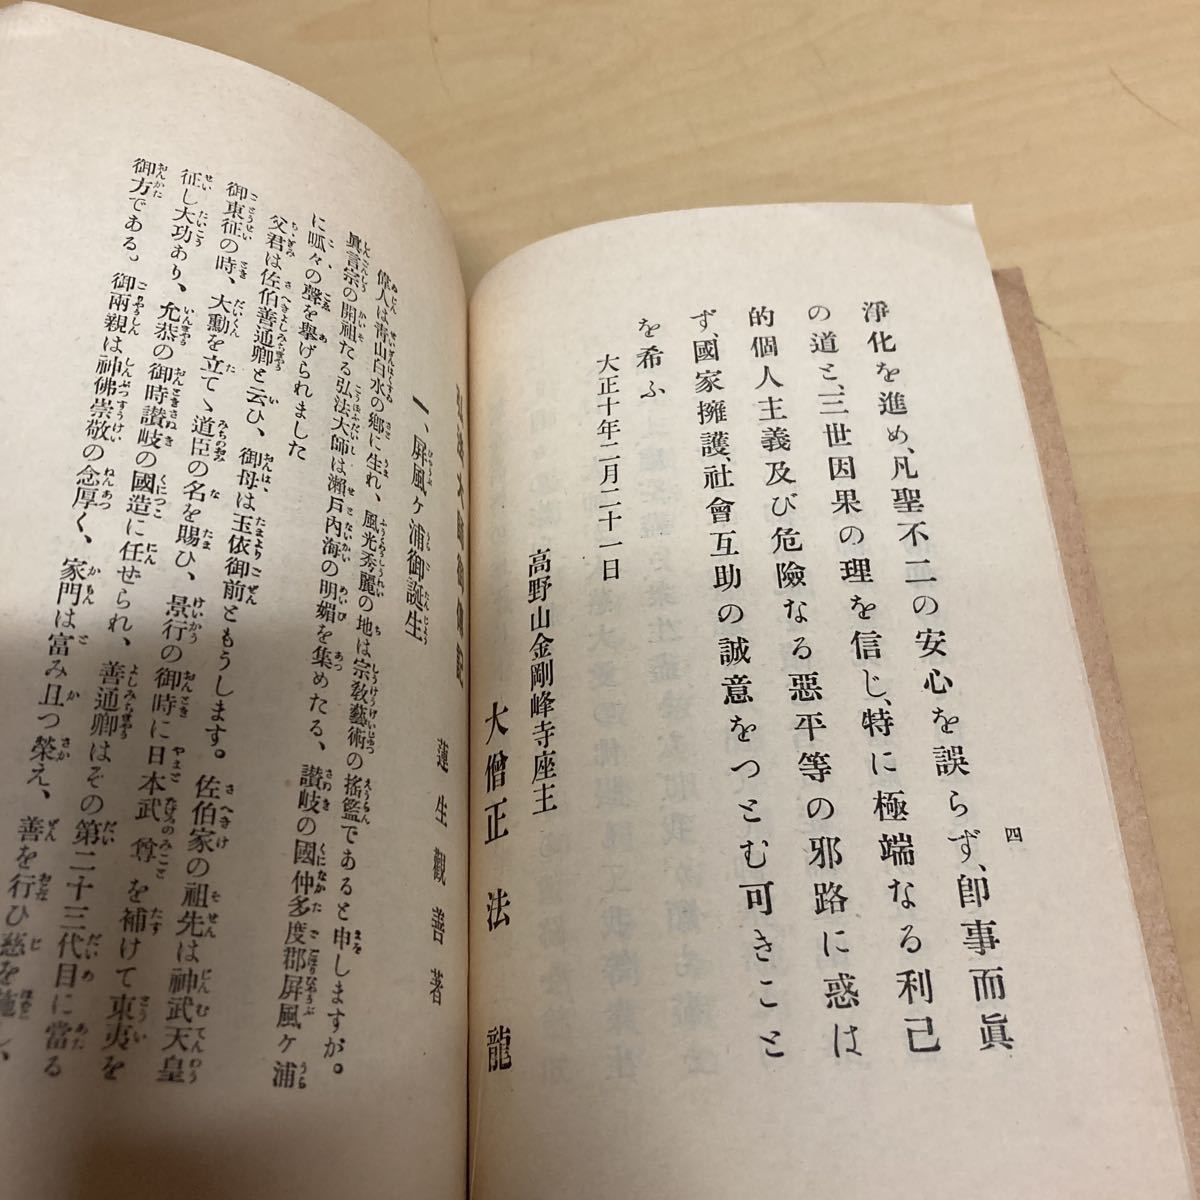 四
淨化を進め、凡聖不二の安心を誤らず、卽事而眞
の道と、三世因果の理を信じ、特に極端なる利己
的個人主義及び危險なる惡平等の邪路に惑は
ず、國家擁護、社會互助の誠意をつとむ可きこと
を希ふ
大正十年二月二十一日
高野山金剛峰寺座主
大僧正 法龍
蓮生觀善著
一、屏風ヶ浦御誕生
偉人は靑山白水の鄕に生れ、風光秀麗の地は宗敎藝術の搖籃であると申しますが。
眞言宗の開祖たる弘法大師は瀨戸內海の明媚を集めたる、讃岐の國仲多度郡屏風ヶ浦
に呱々の聲を擧げられました
父君は佐伯善通卿と云ひ、御母は玉依御前ともうします。佐伯家の祖先は神武天皇
御東征の時、大勳を立てゝ道臣の名を賜ひ、景行の御時に日本武尊を補けて東夷を
征し大功あり、允恭の御時讃岐の國造に任せられ、善通卿はその第二十三代目に當る
御方である。御兩親は神佛崇敬の念厚く、家門は富み且つ榮え、善を行ひ慈を施し、